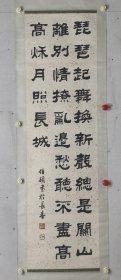 琵琶起舞換新聲總是關山
離別情撩亂邊愁聽不盡高
高秋月照長城